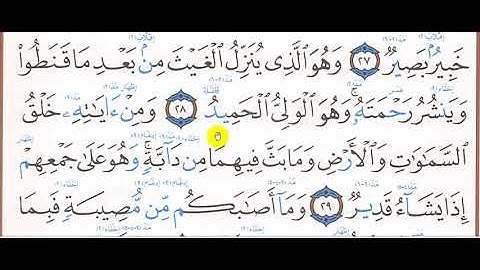 خَبِيرٌۢ بَصِيرٌ ٢٧ وَهُوَ ٱلَّذِى يُنَزِّلُ ٱلْغَيْثَ مِنۢ بَعْدِ مَا قَنَطُوا۟
وَيَنشُرُ رَحْمَتَهُۥ ۚ وَهُوَ ٱلْوَلِىُّ ٱلْحَمِيدُ ٢٨ وَمِنْ ءَايَـٰتِهِۦ خَلْقُ
ٱلسَّمَـٰوَٰتِ وَٱلْأَرْضِ وَمَا بَثَّ فِيهِمَا مِن دَآبَّةٍ ۚ وَهُوَ عَلَىٰ جَمْعِهِمْ
إِذَا يَشَآءُ قَدِيرٌ ٢٩ وَمَآ أَصَـٰبَكُم مِّن مُّصِيبَةٍ فَبِمَا